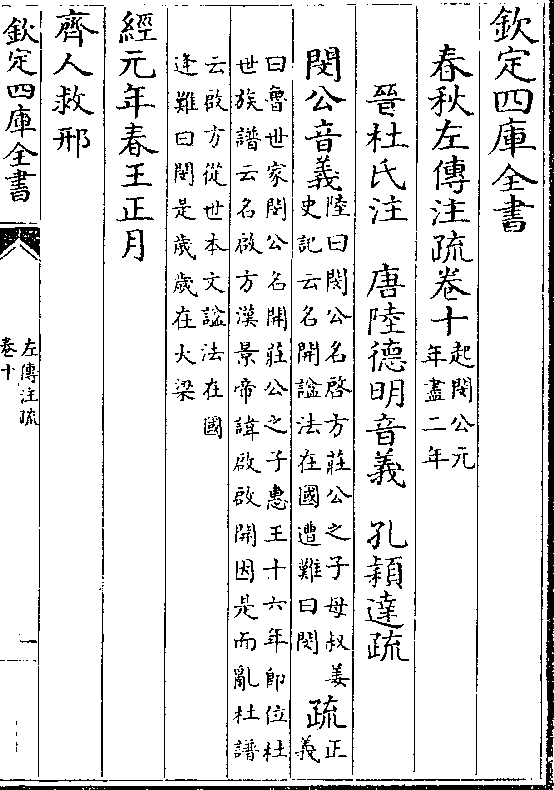 欽定四庫全書
春秋左傳注疏卷十
起閔公元
年盡二年
晉杜氏注　唐陸德明音義　孔穎達疏
閔公音義
陸曰閔公名啓方莊公之子母叔姜
史記云名開諡法在國遭難曰閔
疏
正
義
曰魯世家閔公名開莊公之子惠王十六年即位杜
世族譜云名啟方漢景帝諱啟啟開因是而亂杜譜
云啟方從世本文諡法在國
逢難曰閔是歲歲在大梁
經元年春王正月
齊人救邢
欽定四庫全書
左傳注疏
卷十
一